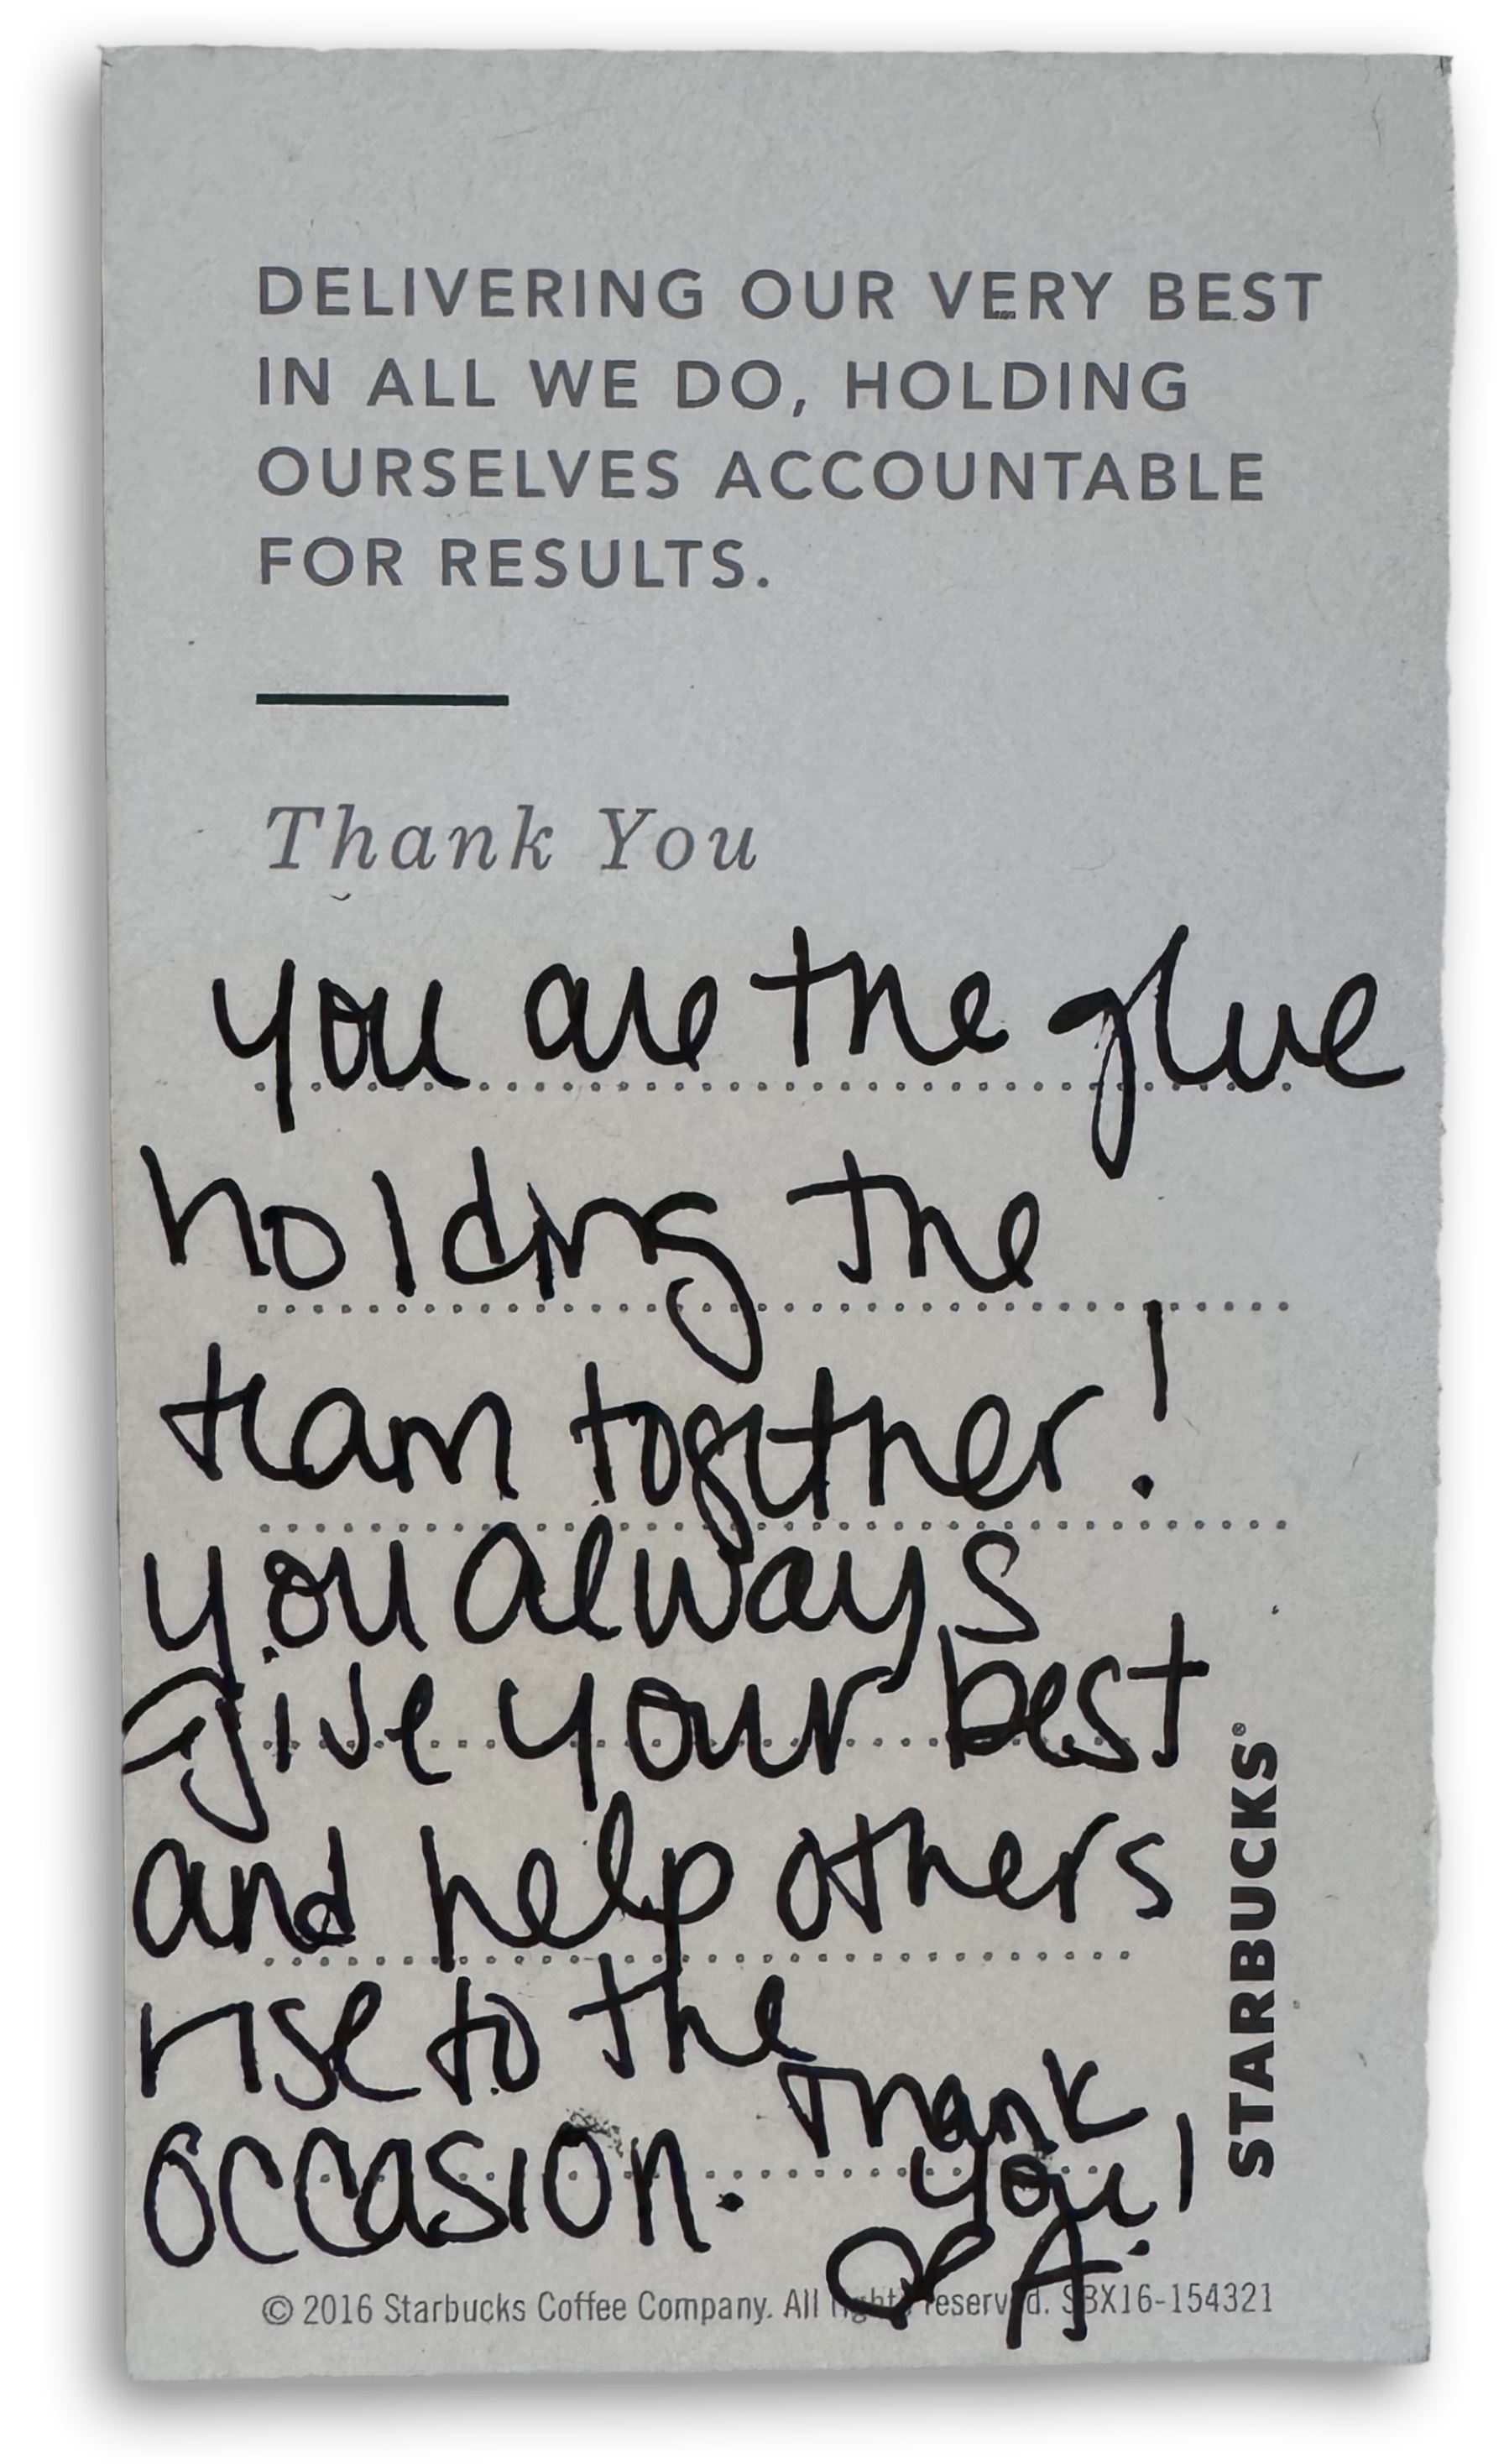 DELIVERING OUR VERY BEST
IN ALL WE DO, HOLDING
OURSELVES ACCOUNTABLE
FOR RESULTS.
Thank You
you are the glue
holding the
team together!
you always
give your best
and help others
rise to the
occasion. Thank
you!
A
STARBUCKS®
© 2016 Starbucks Coffee Company. All rights reserved. SBX16-154321